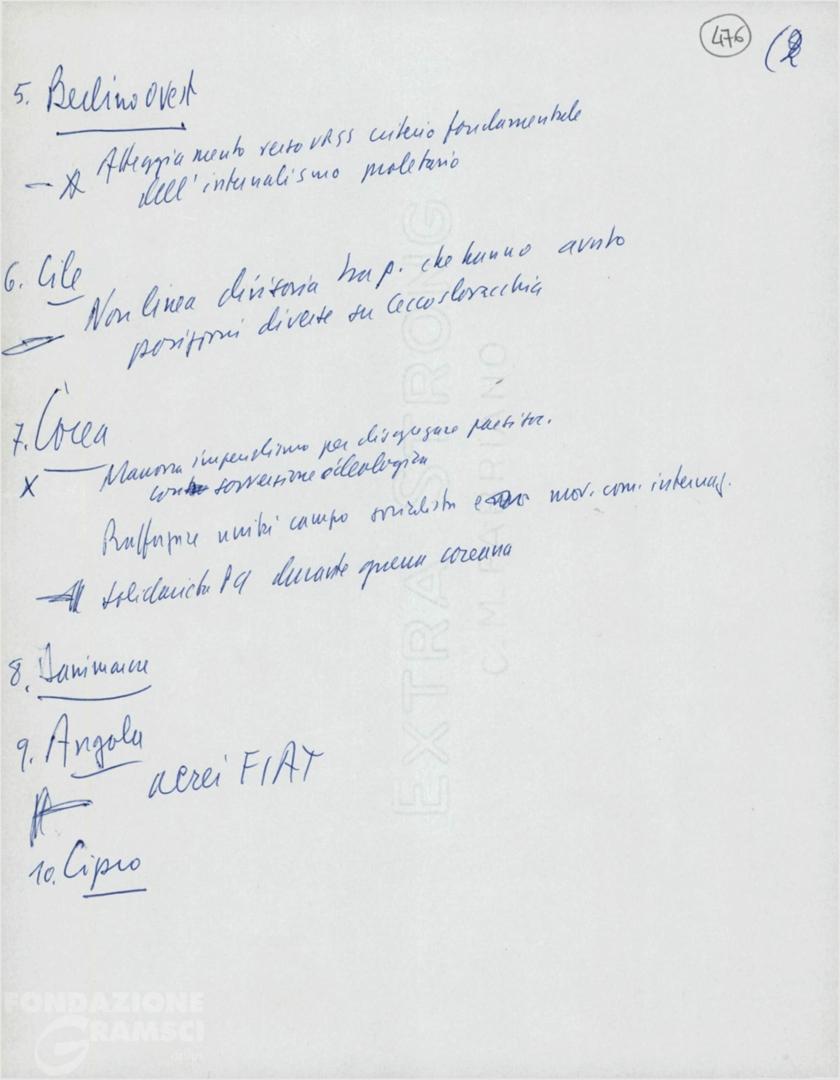 476 (2
5. Berlino Ovest
- Atteggiamento verso URSS criterio fondamentale
dell'internalismo proletario
6. Cile
Non linea divisoria tra p. che hanno avuto
posizioni diverse su Cecoslovacchia
7. Corea
X Manovra imperialismo per disgregare
sovversione ideologica
Rafforzare unità campo socialista e mov. com. internaz.
solidarietà PCI durante guerra coreana
8. Danimarca
9. Angola
aerei FIAT
10. Cipro
EXTRA STRONG
C. M. FABRIANO
FONDAZIONE
GRAMSCI